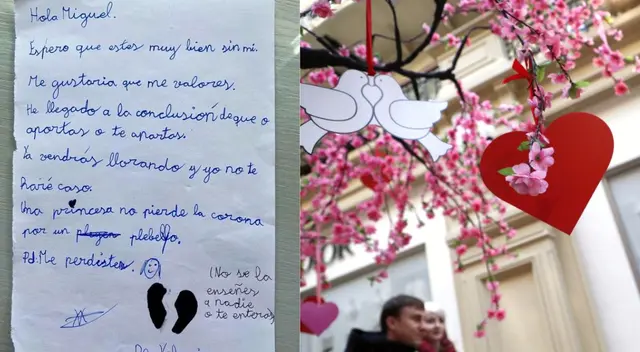 Hola Miguel.
Espero que estes muy bien sin mi.
Me gustaria que me valores.
He llegado a la conclusión de que o
aportas o te apartas.
Ya vendrás llorando y yo no te
haré caso.
Una princesa no pierde la corona
por un plebello.
Pd: Me perdistes.
(No se la
enseñes
a nadie
o te enteras)